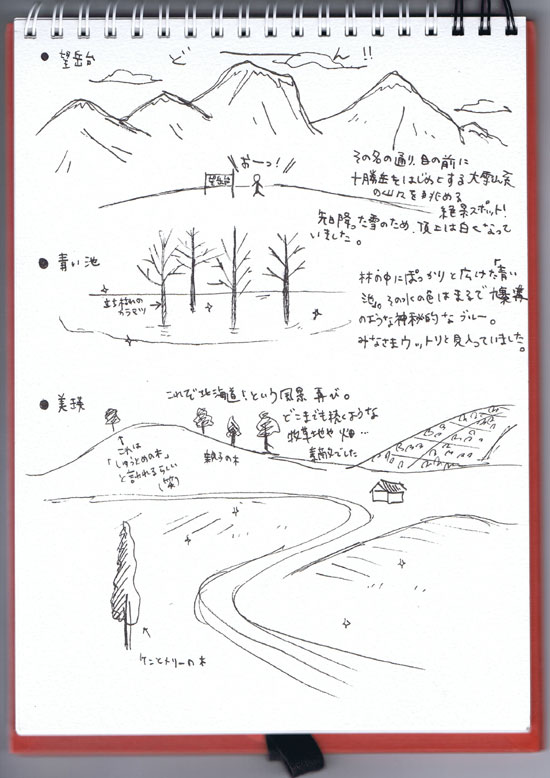 ● 望岳台
どーーん!!
おーっ!
望岳台
その名の通り、目の前に
十勝岳をはじめとする大雪山系
の山々を眺める
絶景スポット!
先日降った雪のため、頂上は白くなって
いました。
● 青い池
立ち枯れの
カラマツ
林の中にぽっかりと広けた「青い
池」。その水の色はまるで
のような神秘的なブルー。
みなさまウットリと見入っていました。
● 美瑛
これぞ北海道!という風景 再び。
どこまでも続くような
牧草地や畑…
素敵でした
↑
これは
「しゅうとめの木」
と言われるらしい
(笑)
親子の木
ケンとメリーの木